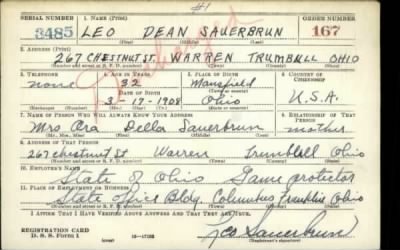 #1
SERIAL NUMBER 1. NAME (Print) ORDER NUMBER
3485 LEO DEAN SAUERBRUN 167
(First) (Middle) (Last)
2. ADDRESS (Print)
267 CHESTNUT ST. WARREN TRUMBULL OHIO
(Number and street or R. F. D. number) (Town) (County) (State)
3. TELEPHONE 4. AGE IN YEARS 5. PLACE OF BIRTH 6. COUNTRY OF CITIZENSHIP
none 32 Mansfield
DATE OF BIRTH (Town or county)
3-17-1908 Ohio U.S.A.
(Exchange) (Number) (Mo.) (Day) (Yr.) (State or country)
7. NAME OF PERSON WHO WILL ALWAYS KNOW YOUR ADDRESS 8. RELATIONSHIP OF THAT PERSON
Mrs Ora Della Sauerbrun mother
(Mr., Mrs., Miss) (First) (Middle) (Last)
9. ADDRESS OF THAT PERSON
267 chestnut St Warren Trumbull Ohio
(Number and street or R. F. D. number) (Town) (County) (State)
10. EMPLOYER'S NAME
State of Ohio Game protector
11. PLACE OF EMPLOYMENT OR BUSINESS
State office Bldg. Columbus Franklin Ohio
(Number and street or R. F. D. number) (Town) (County) (State)
I AFFIRM THAT I HAVE VERIFIED ABOVE ANSWERS AND THAT THEY ARE TRUE.
REGISTRATION CARD
D. S. S. Form 1 16-17105 Leo Sauerbrun
(over) (Registrant's signature)